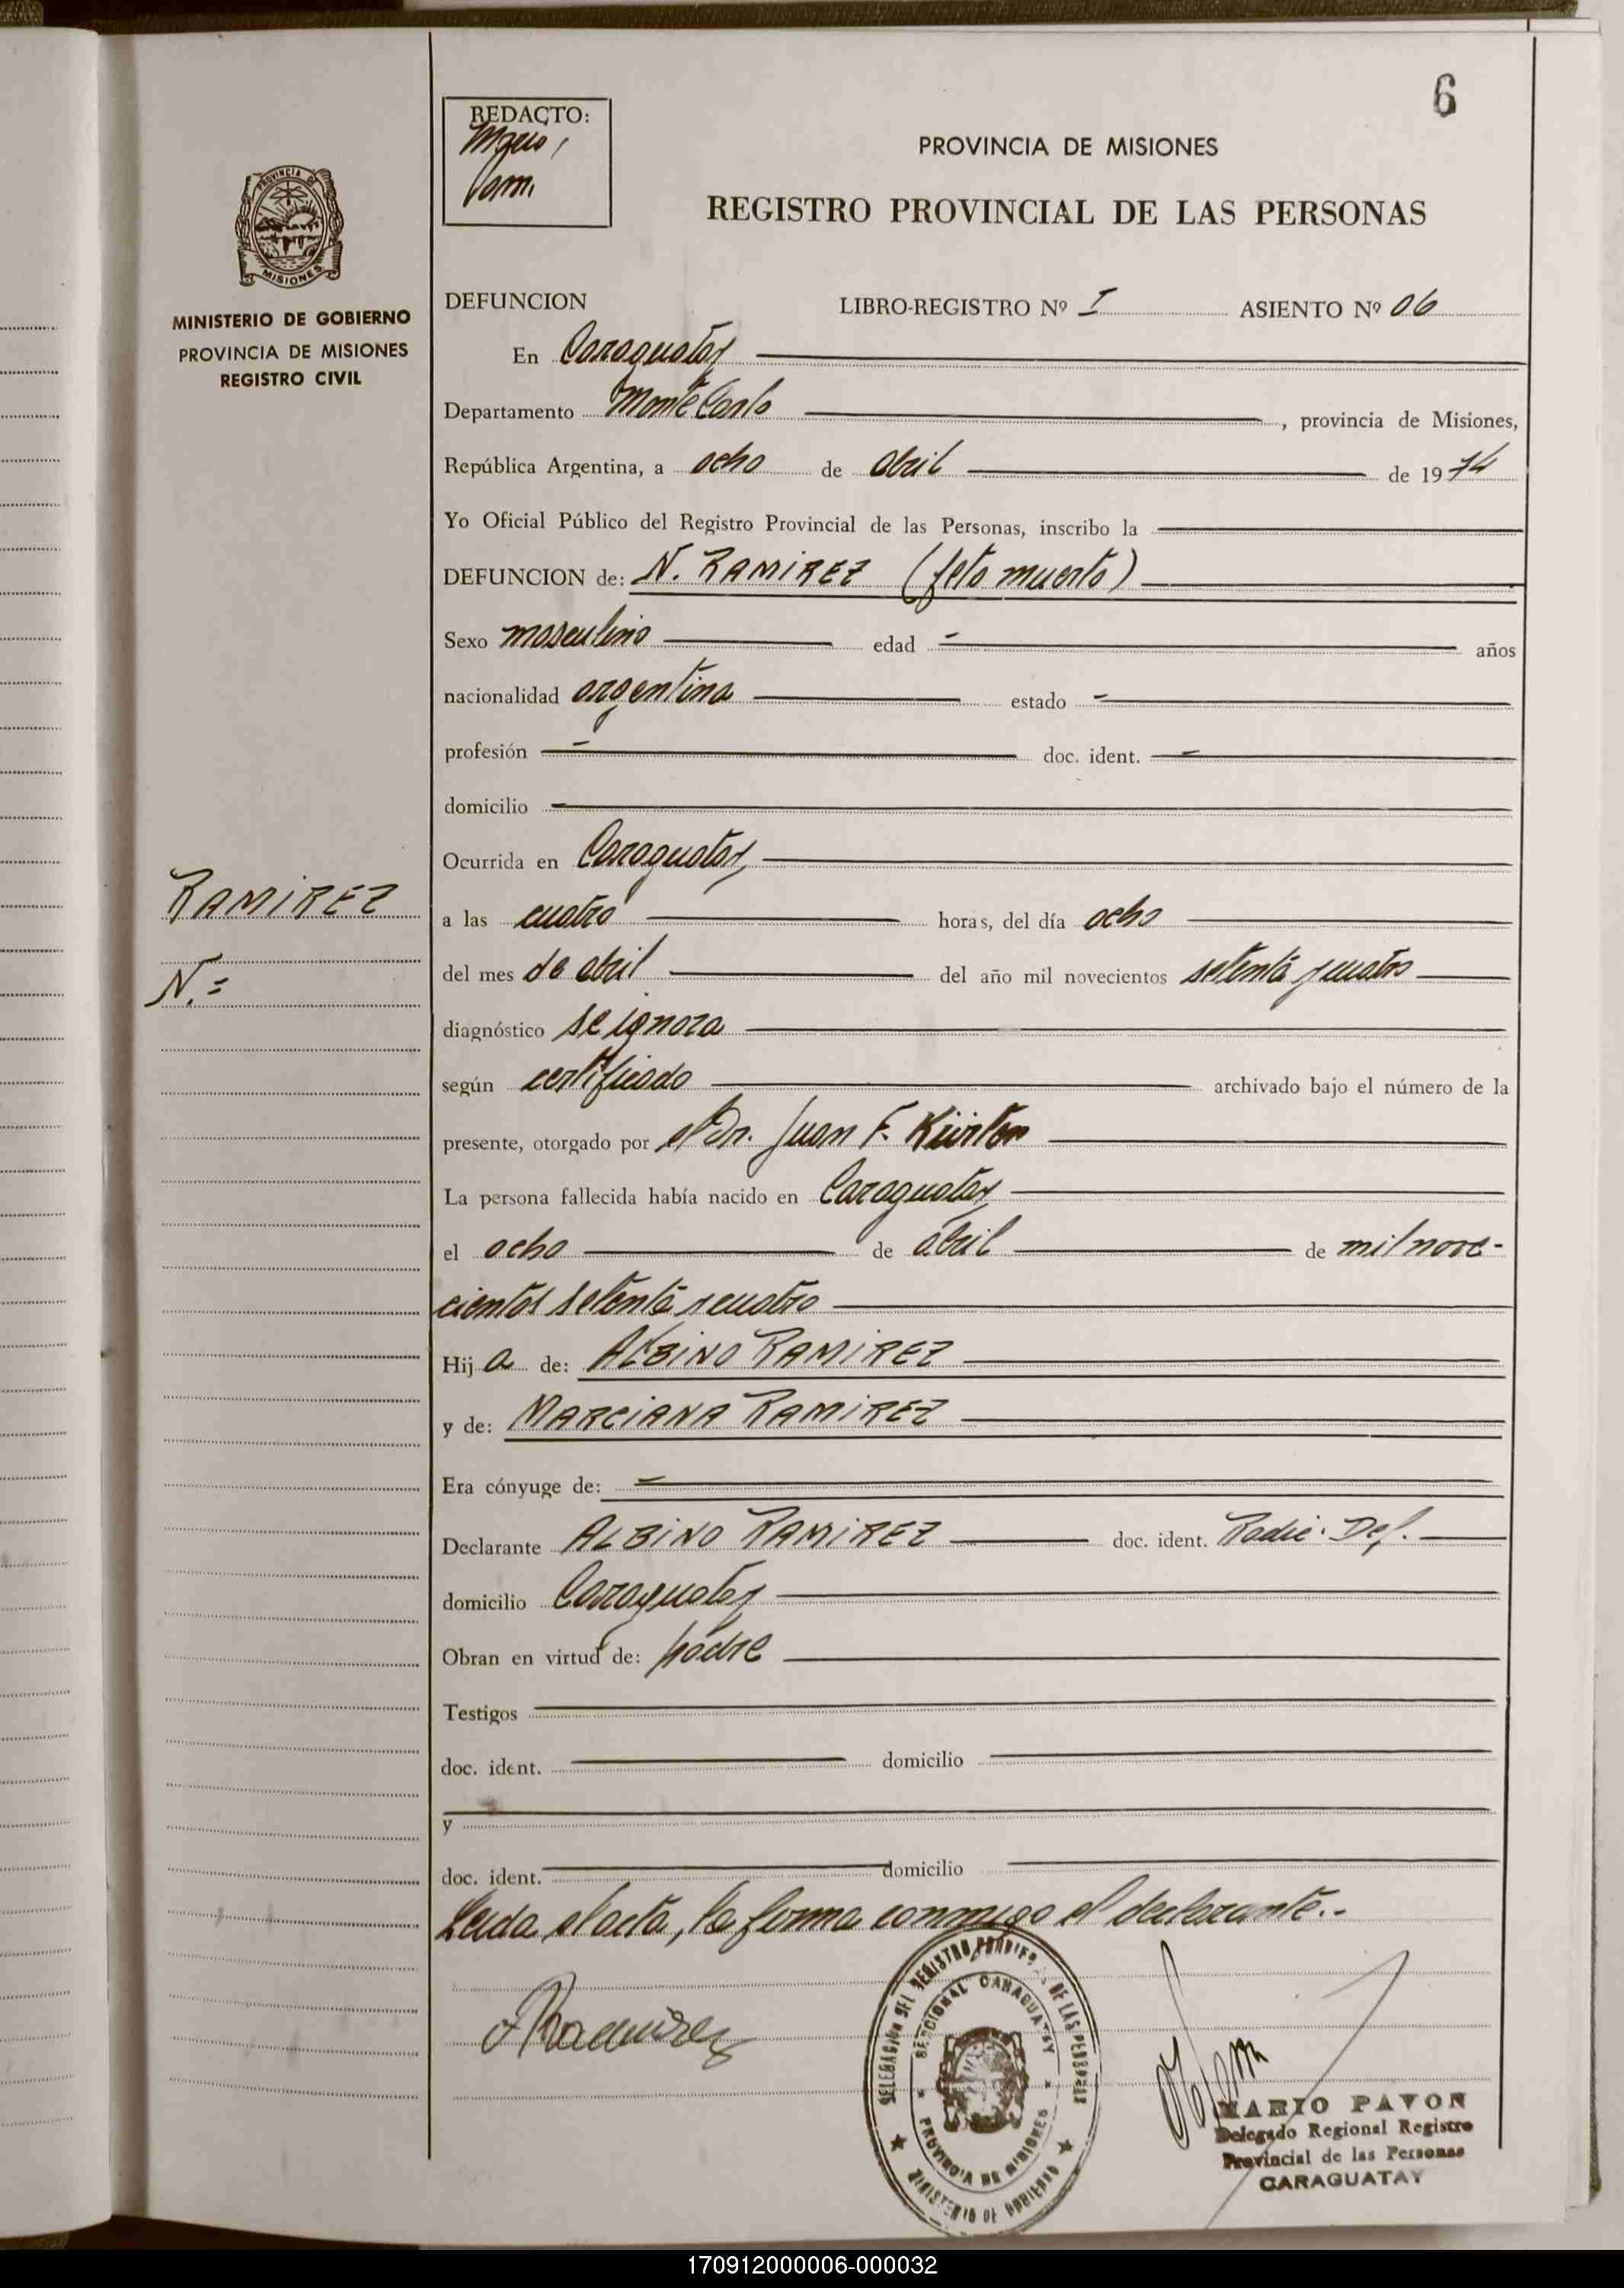 6
REDACTO:
PROVINCIA DE MISIONES
REGISTRO PROVINCIAL DE LAS PERSONAS
PROVINCIA DE
MISIONES
MINISTERIO DE GOBIERNO
PROVINCIA DE MISIONES
REGISTRO CIVIL
DEFUNCION LIBRO-REGISTRO Nº I ASIENTO Nº 06
En Caraguatay
Departamento Montecarlo, provincia de Misiones,
República Argentina, a ocho de abril de 1974
Yo Oficial Público del Registro Provincial de las Personas, inscribo la
DEFUNCION de: N. RAMIREZ (feto muerto)
Sexo masculino edad - años
nacionalidad argentina estado -
profesión - doc. ident. -
domicilio -
Ocurrida en Caraguatay
RAMIREZ
N.=
a las cuatro horas, del día ocho
del mes de abril del año mil novecientos setenta y cuatro
diagnóstico se ignora
según certificado archivado bajo el número de la
presente, otorgado por el Dr. Juan F.
La persona fallecida había nacido en Caraguatay
el ocho de abril de mil nove-
cientos setenta y cuatro
Hij a de: ALBINO RAMIREZ
y de: MARCIANA RAMIREZ
Era cónyuge de: -
Declarante ALBINO RAMIREZ doc. ident. Radic. Def.
domicilio Caraguatay
Obran en virtud de: padre
Testigos
doc. ident. domicilio
y
doc. ident. domicilio
Leida el acta, la firma conmigo el declarante.-
A Ramirez
DELEGACION DEL REGISTRO PROVINCIAL DE LAS PERSONAS
SECCIONAL CARAGUATAY
PROVINCIA DE MISIONES
MINISTERIO DE GOBIERNO
MARIO PAVON
Delegado Regional Registro
Provincial de las Personas
CARAGUATAY
170912000006-000032